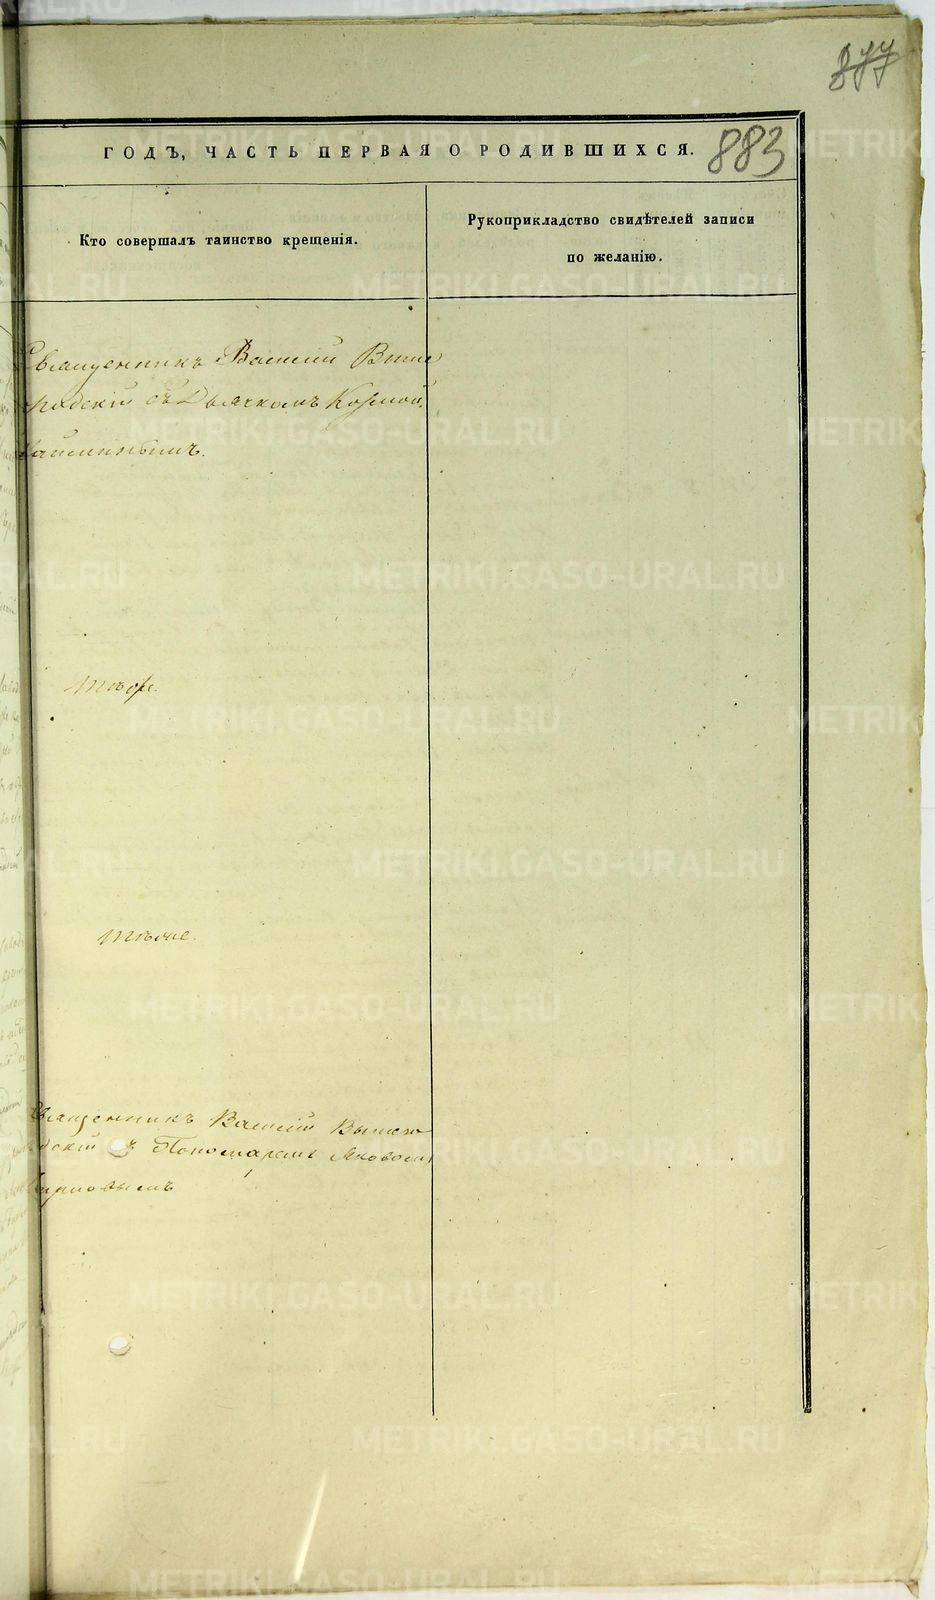 877
ГОДЪ, ЧАСТЬ ПЕРВАЯ О РОДИВШИХСЯ.
883
Кто совершалъ таинство крещенія.
Рукоприкладство свидѣтелей записи
по желанію.
Священникъ Василій
съ Дьячкомъ Козмой
Тѣже.
Тѣже.
Священникъ Василій
съ Пономаремъ Яковомъ
METRIKI.GASO-URAL.RU